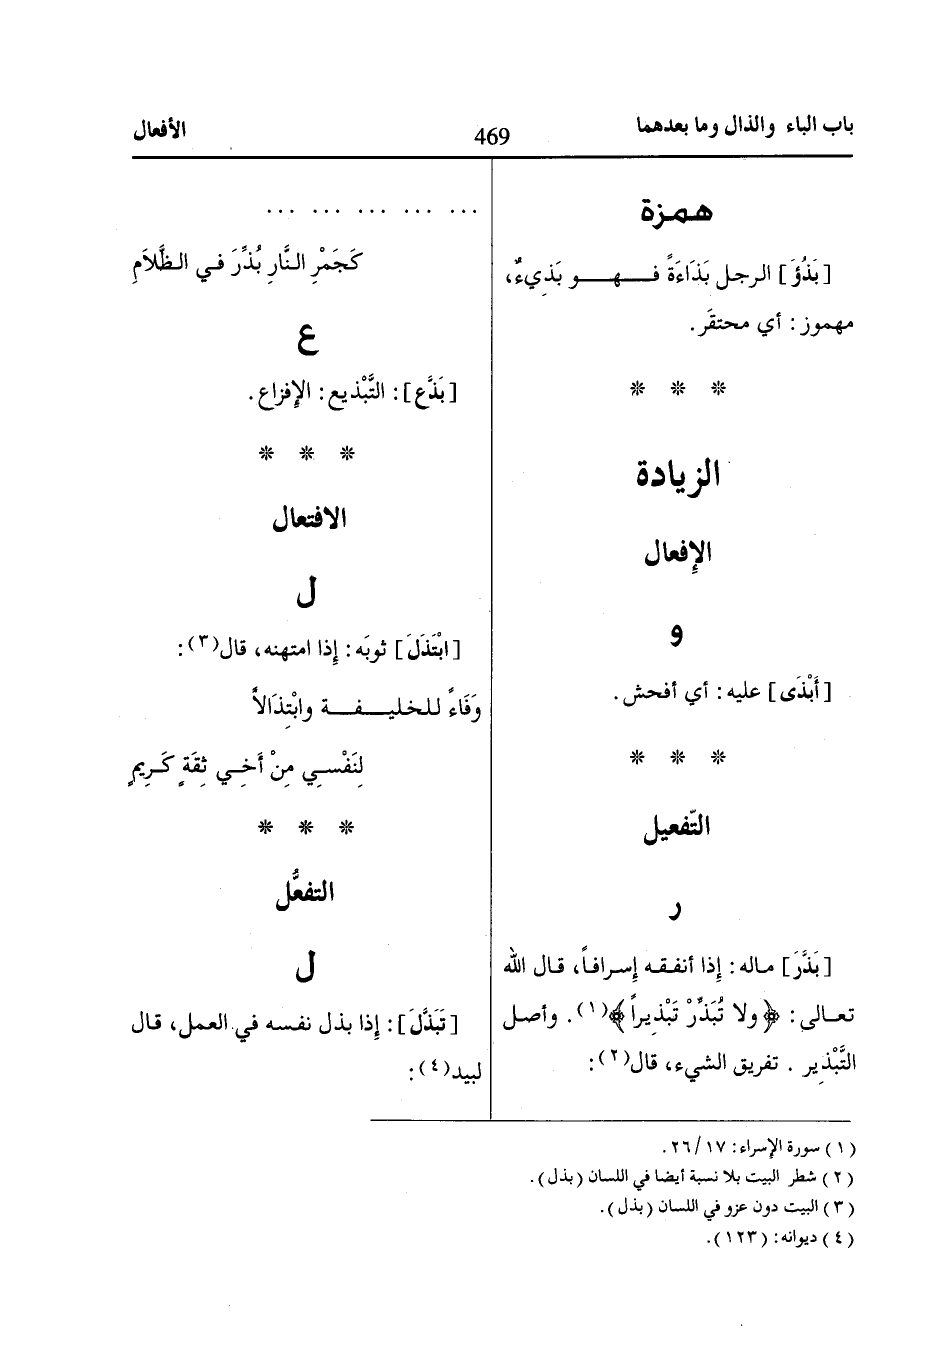 باب الباء والذال وما بعدهما
469
الأفعال
همزة
[بَذُؤَ] الرجل بَذَاءَةً فـهـو بَذِيءٌ،
مهموز: أي محتقَر.
* * *
الزيادة
الإفعال
و
[أَبْذَى] عليه: أي أفحش.
* * *
التّفعيل
ر
[بَذَّرَ] ماله: إذا أنفقه إسرافاً، قال الله
تعالى: ﴿ولا تُبَذِّرْ تَبْذيراً﴾(١). وأصل
التَّبْذِير . تفريق الشيء، قال(٢):
... ... ... ... ...
كَجَمْرِ النَّارِ بُذِّرَ في الظَّلاَمِ
ع
[بَذَّع]: التَّبْذيع: الإفزاع.
* * *
الافتعال
ل
[ابْتَذَلَ] ثوبَه: إذا امتهنه، قال(٣):
وَفَاءً للخليفة وابْتِذَالاً
لِنَفْسي مِنْ أَخي ثِقَةٍ كَرِيمٍ
* * *
التفعُّل
ل
[تَبَذَّلَ]: إذا بذل نفسه في العمل، قال
لبيد(٤):
(١) سورة الإسراء: ٢٦/١٧.
(٢) شطر البيت بلا نسبة أيضا في اللسان (بذل).
(٣) البيت دون عزو في اللسان (بذل).
(٤) ديوانه: (١٢٣).